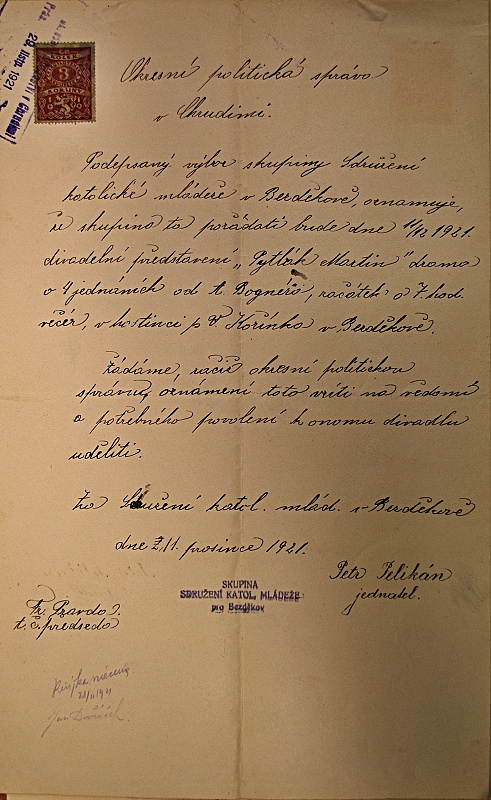 29. listp. 1921
KOLEK
3
KORUNY
Okresní politická správo
v Chrudimi.
Podepsaný výbor skupiny Sdružení
katolické mládeže v Bezděkově, oznamuje,
že skupina ta pořádati bude dne 11/12 1921.
divadelní představení „Pytlák Martin" drama
o 4 jednáních od A. Bognéra, začátek o 7. hod.
večer, v hostinci p. V. Kořínka v Bezděkově.
Žádáme, račiž okresní politickou
správu, oznámení toto vzíti na vědomí
a potřebného povolení k onomu divadlu
uděliti.
Za Sdružení katol. mlád. v Bezděkově
dne prosince 1921.
Petr Pelikán
jednatel.
SKUPINA
SDRUŽENÍ KATOL. MLÁDEŽE
pro Bezděkov
Fr. Pravdo
t. č. předseda